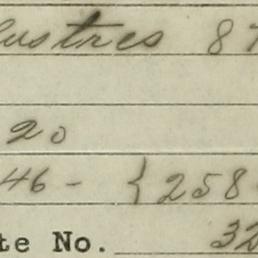 lustres 87
20
46 - {258
te No. 32